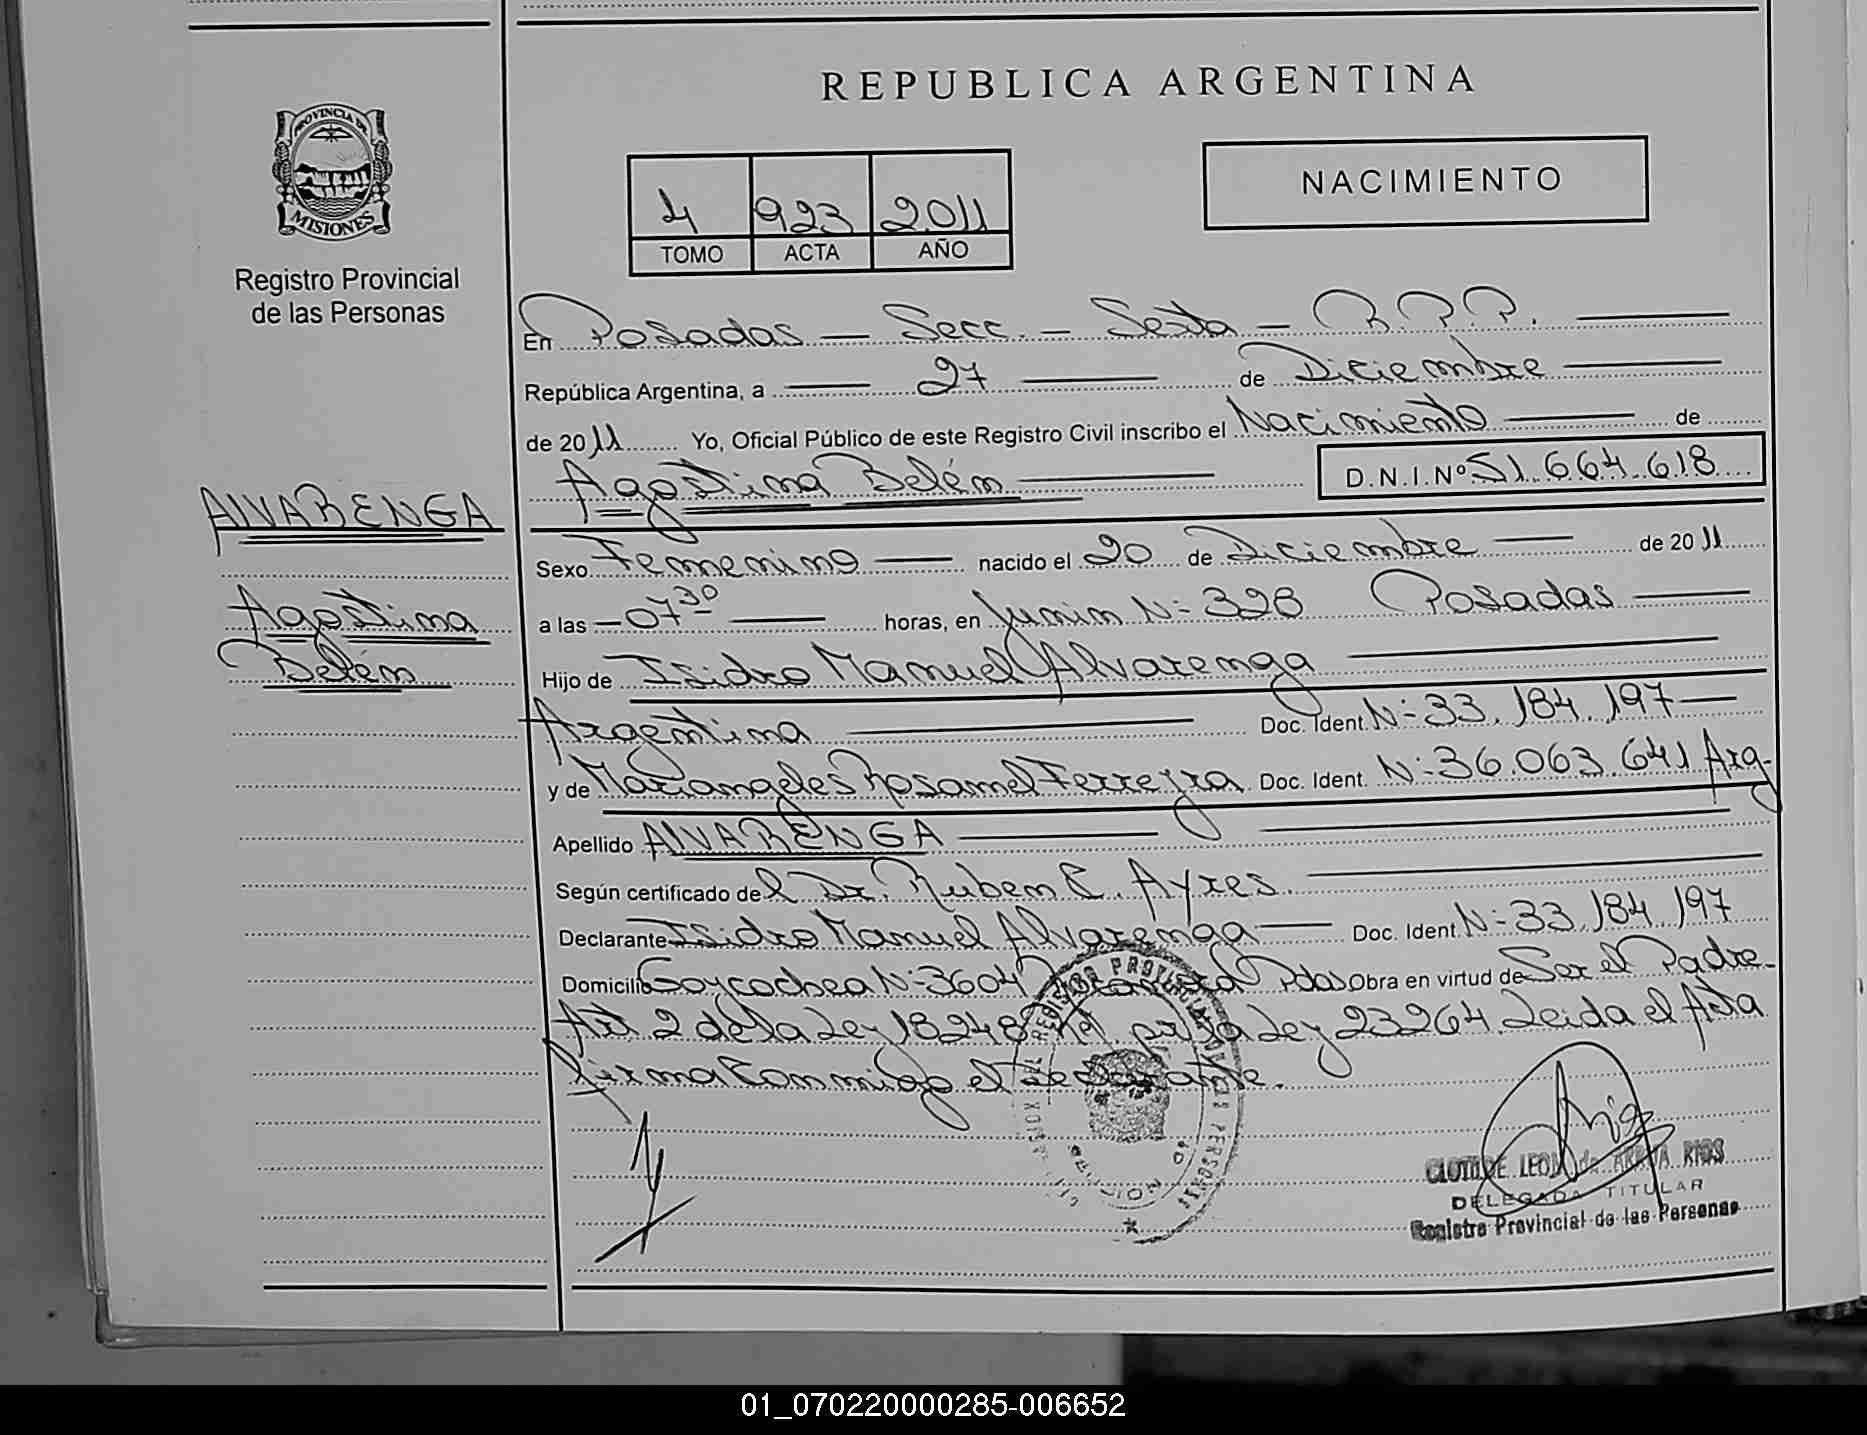 REPUBLICA ARGENTINA
PROVINCIA DE
MISIONES
Registro Provincial
de las Personas
4 923 2011
TOMO ACTA AÑO
NACIMIENTO
En Posadas — Secc. — Sexta — R.P.P.
República Argentina, a 27 de Diciembre
de 2011 Yo, Oficial Público de este Registro Civil inscribo el Nacimiento de
Agostina Belén D.N.I.Nº 51.664.618
ALVARENGA
Agostina
Belén
Sexo Femenino nacido el 20 de Diciembre de 2011
a las 07 30 horas, en Junin Nº 328 Posadas
Hijo de Isidro Manuel Alvarenga
Argentina Doc. Ident. Nº 33.184.197
y de Mariangeles Rosamel Ferreyra Doc. Ident. Nº 36.063.641 Arg.
Apellido ALVARENGA
Según certificado del Dr. Ruben E. Ayres.
Declarante Isidro Manuel Alvarenga Doc. Ident. Nº 33.184.197
Domicilio Goycochea Nº 3604 Pdas Obra en virtud de Ser el Padre
Art 2 de la Ley 18248 por la Ley 23264. Leida el Acta
firma Conmigo el declarante.
CLOTILDE LEON de ARRUA RIOS
DELEGADA TITULAR
Registro Provincial de las Personas
01_070220000285-006652